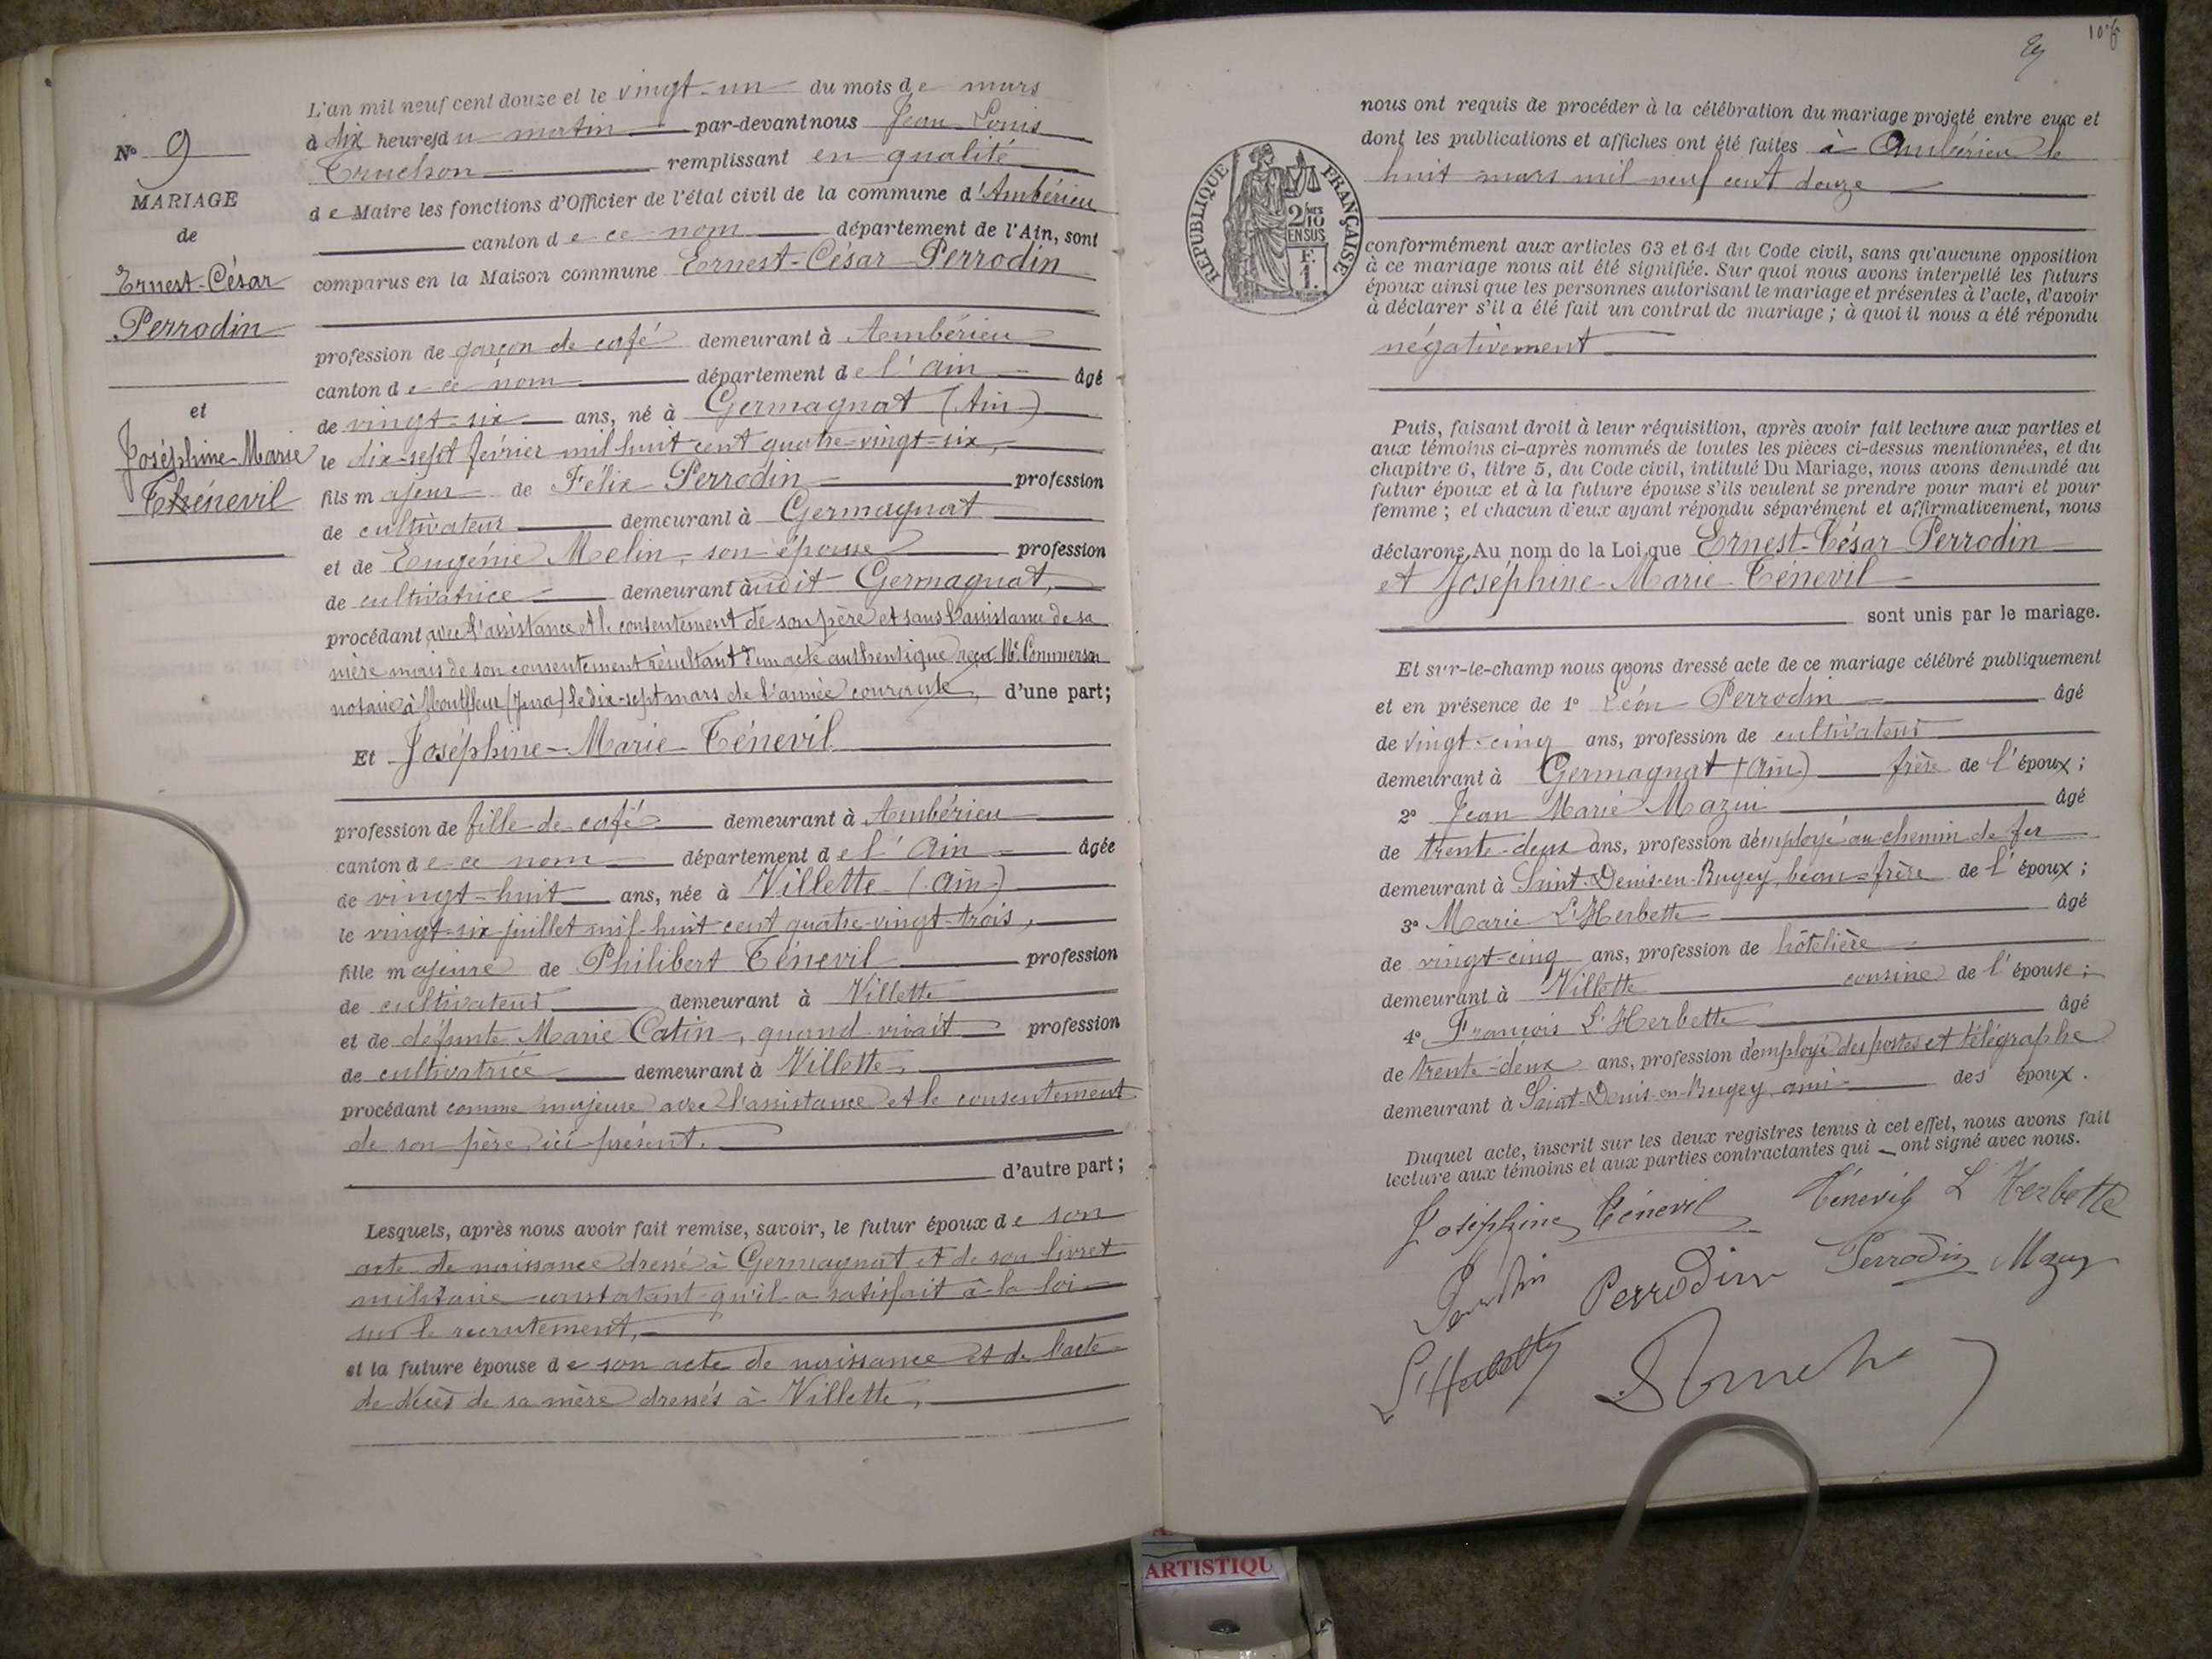 N° 9
MARIAGE
de
Ernest-César
Perrodin
et
Joséphine-Marie
Thénevil
L'an mil neuf cent douze et le vingt-un du mois de mars
à dix heures du matin par-devant nous Jean Louis
Truchon remplissant en qualité
de Maire les fonctions d'Officier de l'état civil de la commune d'Ambérieu
canton de ce nom département de l'Ain, sont
comparus en la Maison commune Ernest-César Perrodin
profession de garçon de café demeurant à Ambérieu
canton de ce nom département de l'Ain âgé
de vingt-six ans, né à Germagnat (Ain)
le dix-sept février mil huit cent quatre-vingt-six,
fils majeur de Félix Perrodin profession
de cultivateur demeurant à Germagnat
et de Eugénie Melin, son épouse profession
de cultivatrice demeurant audit Germagnat,
procédant avec l'assistance et le consentement de son père et sans l'assistance de sa
mère mais de son consentement résultant d'un acte authentique reçu Me Commerson
notaire à Montfleur (Jura) le dix-sept mars de l'année courante, d'une part;
Et Joséphine-Marie-Ténevil
profession de fille de café demeurant à Ambérieu
canton de ce nom département de l'Ain âgée
de vingt-huit ans, née à Villette (Ain)
le vingt-six juillet mil huit cent quatre-vingt-trois,
fille majeure de Philibert Ténevil profession
de cultivateur demeurant à Villette
et de défunte Marie Catin, quand vivait profession
de cultivatrice demeurant à Villette,
procédant comme majeure avec l'assistance et le consentement
de son père ici présent.
d'autre part;
Lesquels, après nous avoir fait remise, savoir, le futur époux de son
acte de naissance dressé à Germagnat et de son livret
militaire constatant qu'il a satisfait à la loi
sur le recrutement,
et la future épouse de son acte de naissance et de l'acte
de décès de sa mère dressés à Villette,
nous ont requis de procéder à la célébration du mariage projeté entre eux et
dont les publications et affiches ont été faites à Ambérieu le
huit mars mil neuf cent douze
RÉPUBLIQUE FRANÇAISE
2/10 EN SUS
F. 1.
conformément aux articles 63 et 64 du Code civil, sans qu'aucune opposition
à ce mariage nous ait été signifiée. Sur quoi nous avons interpellé les futurs
époux ainsi que les personnes autorisant le mariage et présentes à l'acte, d'avoir
à déclarer s'il a été fait un contrat de mariage ; à quoi il nous a été répondu
négativement
Puis, faisant droit à leur réquisition, après avoir fait lecture aux parties et
aux témoins ci-après nommés de toutes les pièces ci-dessus mentionnées, et du
chapitre 6, titre 5, du Code civil, intitulé Du Mariage, nous avons demandé au
futur époux et à la future épouse s'ils veulent se prendre pour mari et pour
femme ; et chacun d'eux ayant répondu séparément et affirmativement, nous
déclarons, Au nom de la Loi, que Ernest-César Perrodin
et Joséphine-Marie-Ténevil
sont unis par le mariage.
Et sur-le-champ nous avons dressé acte de ce mariage célébré publiquement
et en présence de 1° Léon Perrodin âgé
de vingt-cinq ans, profession de cultivateur
demeurant à Germagnat (Ain) frère de l'époux ;
2° Jean Marie Mazui âgé
de trente-deux ans, profession d'employé au chemin de fer
demeurant à Saint-Denis-en-Bugey, beau-frère de l'époux ;
3° Marie L'Herbette âgé
de vingt-cinq ans, profession de hôtelière
demeurant à Villette cousine de l'épouse ;
4° François L'Herbette âgé
de trente-deux ans, profession d'employé des postes et télégraphe
demeurant à Saint-Denis-en-Bugey, ami des époux.
Duquel acte, inscrit sur les deux registres tenus à cet effet, nous avons fait
lecture aux témoins et aux parties contractantes qui ont signé avec nous.
Joséphine Ténevil Ténevil L'Herbette
Perrodin Perrodin Mazuy
L'Herbette
ARTISTIQU